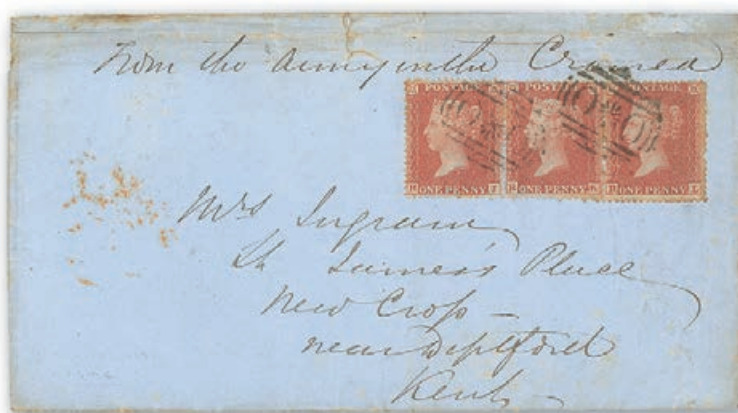 From the army in the Crimea
POSTAGE POSTAGE POSTAGE
ONE PENNY ONE PENNY ONE PENNY
Mrs Ingram
St James's Place
New Cross
near Deptford
Kent